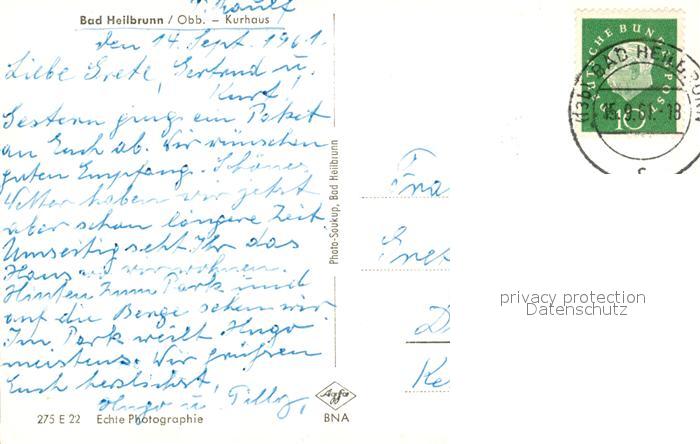 Bad Heilbrunn / Obb. – Kurhaus
den 14. Sept. 1961.
Liebe Grete, Gertrud u.
Kurt!
Gestern ging ein Paket
an Euch ab. Wir wünschen
guten Empfang. Schönes
Wetter haben wir jetzt
aber schon längere Zeit.
Umseitig seht Ihr das
Haus wo wir wohnen.
Hinten zum Park und
auf die Berge sehen wir.
Im Park weilt Hugo
meistens. Wir grüßen
Euch herzlichst,
Hugo u Tilly,
275 E 22 Echte Photographie
Photo-Soukup, Bad Heilbrunn
Agfa
BNA
DEUTSCHE BUNDESPOST
10
(13b) BAD HEILBRUNN
15.9.61.-18
c
Fra
Gret
D
Ke
privacy protection
Datenschutz